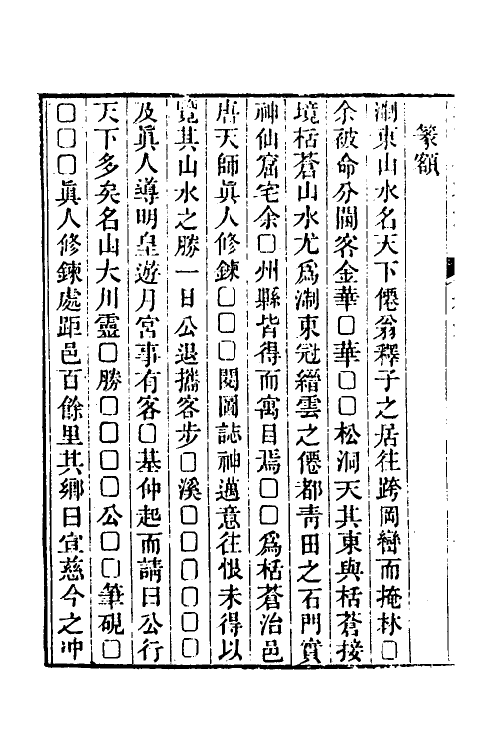 篆額
淛東山水名天下僊翁釋子之居往跨岡巒而掩林□
余被命分閫客金華□華□□松洞天其東與栝蒼接
境栝蒼山水尤爲淛東冠縉雲之僊都靑田之石門實
神仙窟宅余□州縣皆得而寓目焉□□爲栝蒼治邑
唐天師眞人修鍊□□□閱圖誌神邁意往恨未得以
覽其山水之勝一日公退攜客步□溪□□□□□□
及眞人導明皇遊月宮事有客□基仲起而請曰公行
天下多矣名山大川靈□勝□□□□公□□筆硯□
□□□眞人修鍊處距邑百餘里其鄉曰宣慈今之冲